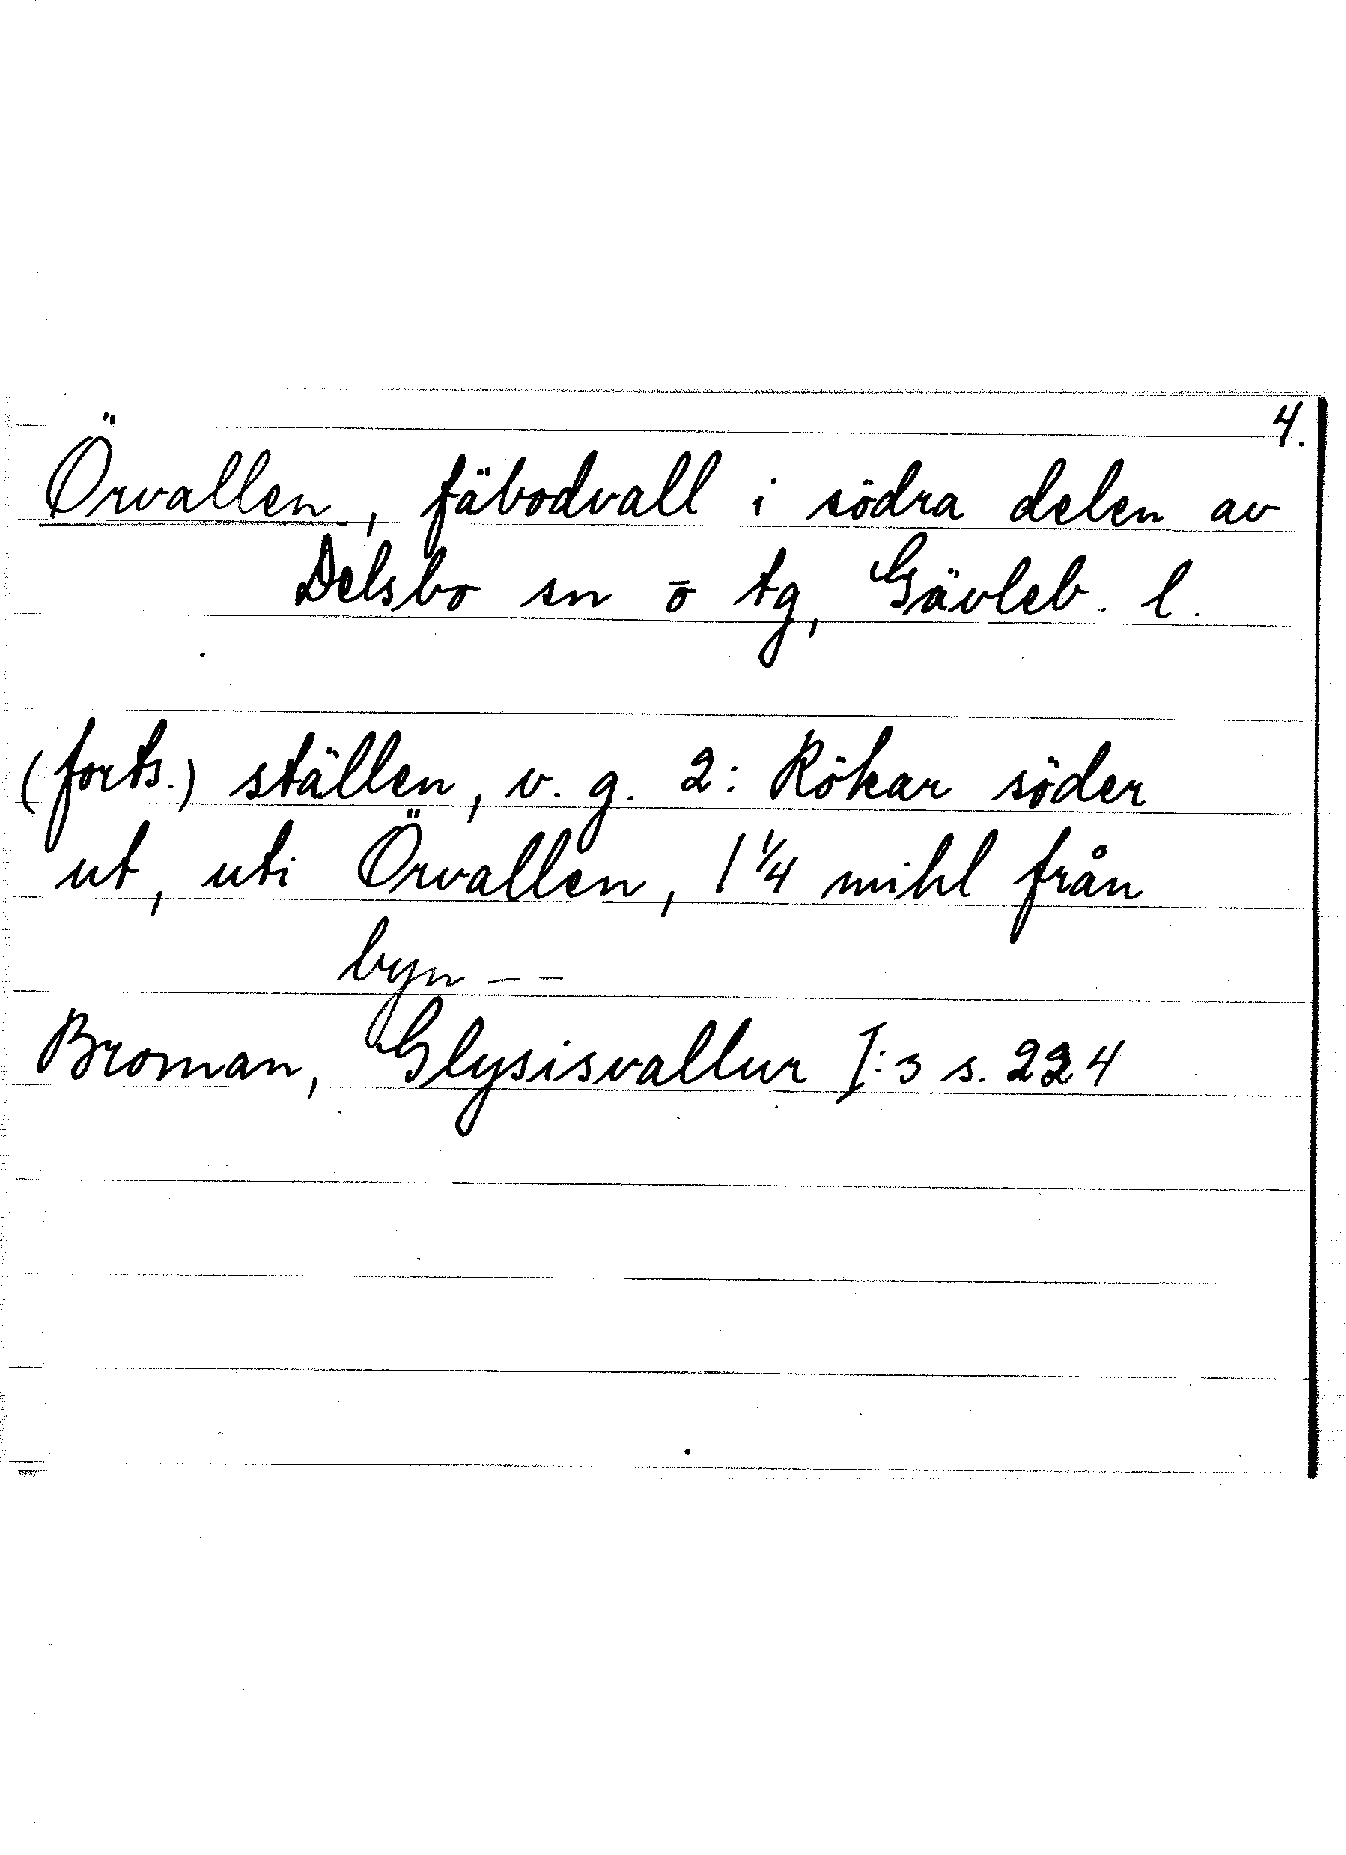 4.
Örvallen, fäbodvall i södra delen av
Delsbo sn o tg, Gävleb. l.
(forts.) ställen, v. g. 2: Rökar söder
ut, uti Örvallen, 1 1/4 mihl från
byn - -
Broman, Glysisvallur I:3 s. 224